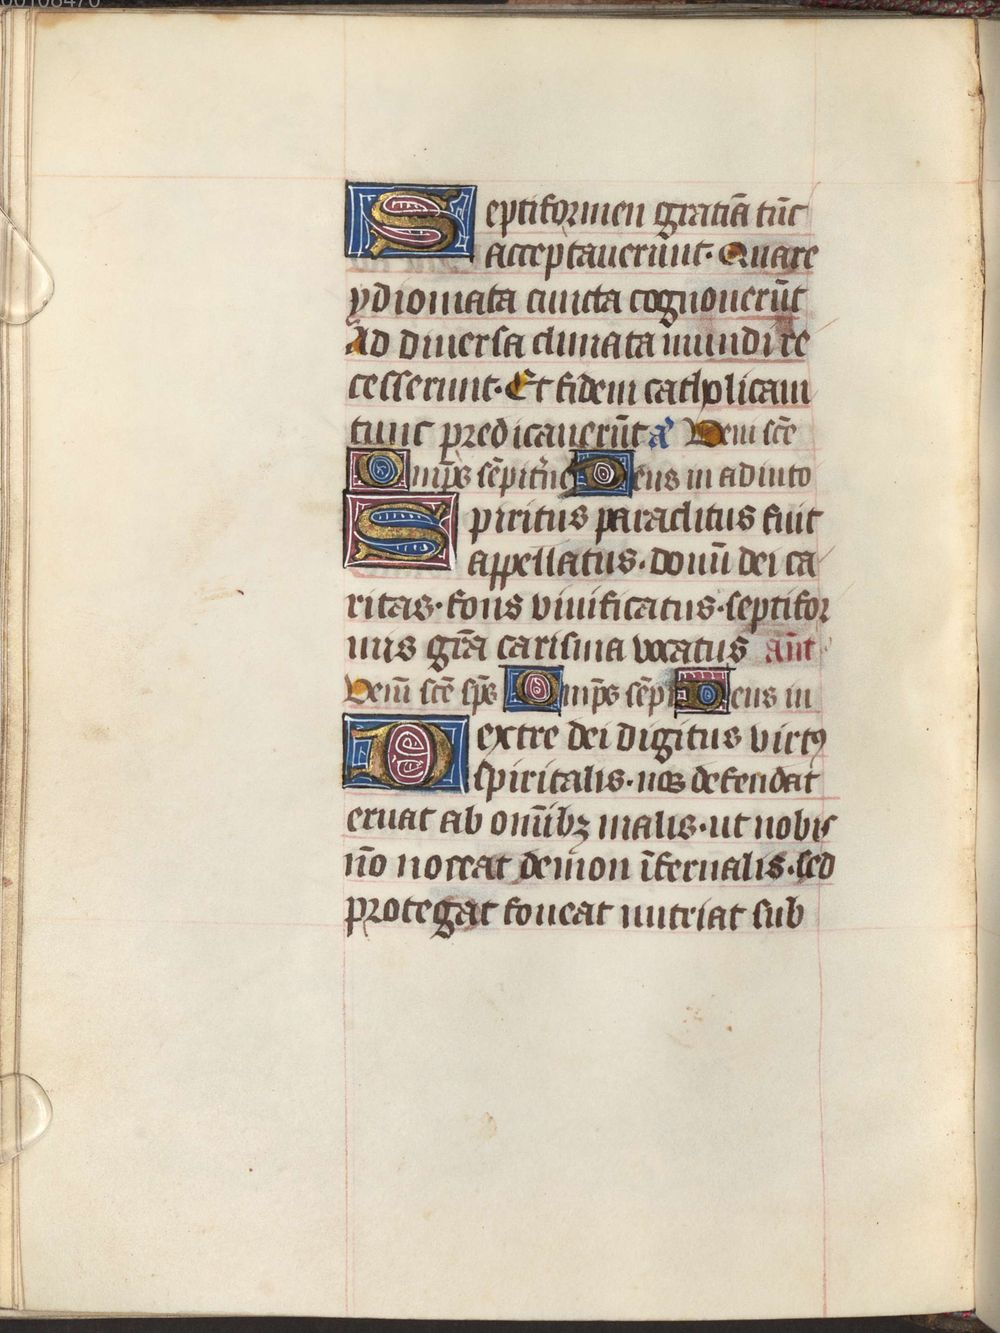 Septiformen gratiã tũc
acceptauerũnt. Quare
ydiomata cuncta cognouerũt
Ad diuersa climata mundi re
cesserunt. Et fidem catholicam
tunc predicauerũt aͣ Veni scẽ
Omp̃s sẽpit̃ne Deus in adiuto
Spiritus paraclitus fuit
appellatus. donũ dei ca
ritas. fons viuificatus. septifor
mis gr̃a carisma vocatus añt
Veni scẽ sp̃s Omp̃s sẽpi Deus in
Dextre dei digitus virtꝰ
spiritalis. nos defendat
eruat ab om̃ibꝫ malis. ut nobis
nõ noceat demon ĩfernalis. sed
protegat foueat nutriat sub